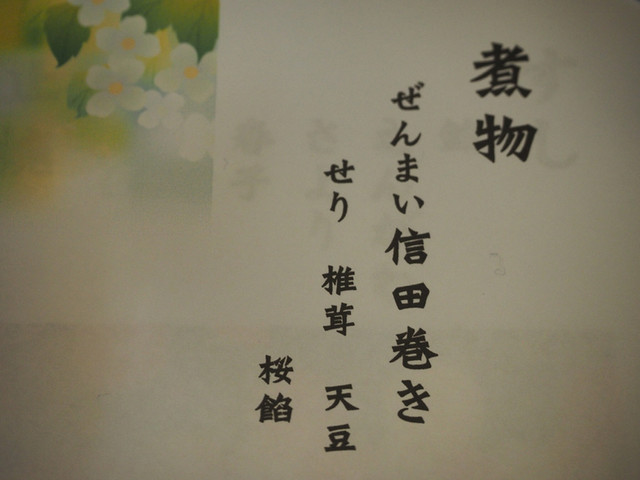 煮物
ぜんまい信田巻き
せり 椎茸 天豆
桜餡